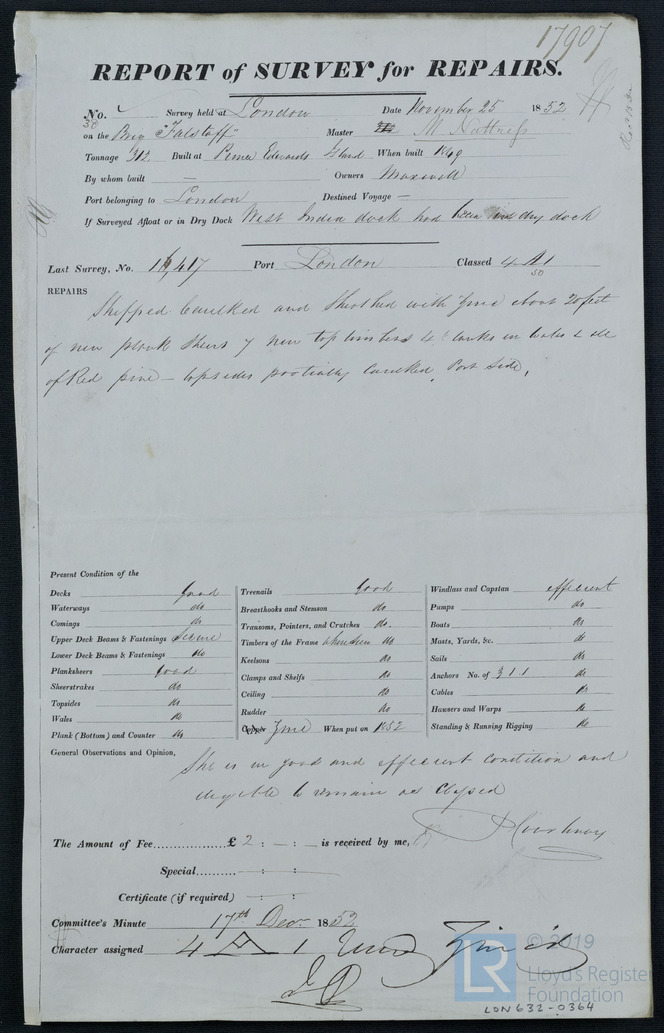 17907
REPORT of SURVEY for REPAIRS.
No. Survey held at London Date November 25 1852
on the Brig "Falstaff" Master M. Nattress
Tonnage 312 Built at Prince Edwards Island When built 1849
By whom built — Owners Maxwell
Port belonging to London Destined Voyage —
If Surveyed Afloat or in Dry Dock West India dock had been in dry dock
Last Survey, No. 16,417 Port London Classed 4 A 1
50
REPAIRS
Shipped Caulked and Sheathed with Zinc about 20 feet
of new plank Sheers 7 new top timbers 4 planks in Wales & all
of Red pine – topsides partially caulked, Port Side,
Present Condition of the
Decks Good
Waterways do
Comings do
Upper Deck Beams & Fastenings Secure
Lower Deck Beams & Fastenings do
Planksheers Good
Sheerstrakes do
Topsides do
Wales do
Plank (Bottom) and Counter do
Treenails Good
Breasthooks and Stemson do
Transoms, Pointers, and Crutches do.
Timbers of the Frame when seen do
Keelsons do
Clamps and Shelfs do
Ceiling do
Rudder do
Copper Zinc When put on 1852
Windlass and Capstan efficient
Pumps do
Boats do
Masts, Yards, &c. do
Sails do
Anchors No. of 3 1 1 do
Cables do
Hawsers and Warps do
Standing & Running Rigging do
General Observations and Opinion,
She is in good and efficient condition and
eligible to remain as Classed
The Amount of Fee £ 2 : — : — is received by me,
Special : :
Certificate (if required) : :
Committee's Minute 17th Decr. 1852
Character assigned 4 A 1 Zinc'd
© 2019
LR
Lloyd's Register
Foundation
LON632-0364